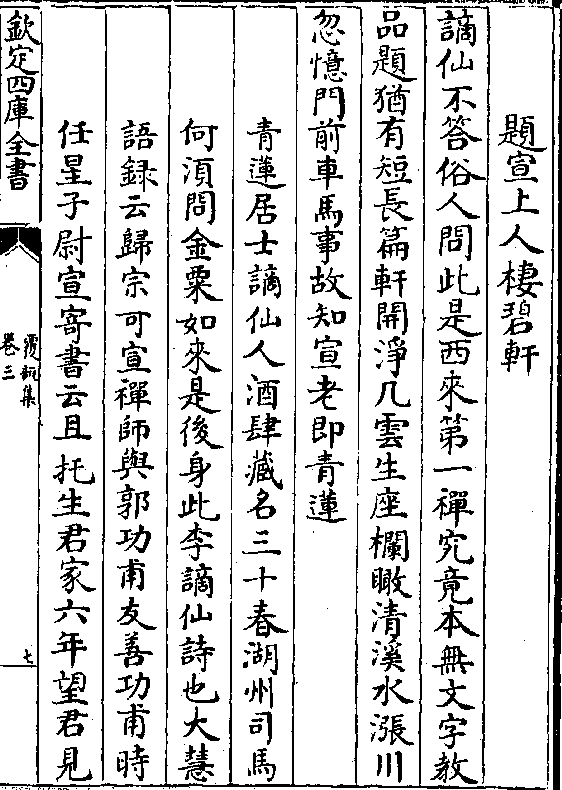 題宣上人棲碧軒
謫仙不答俗人問此是西來第一禪究竟本無文字教
品題猶有短長篇軒開淨几雲生座欄瞰清溪水漲川
忽憶門前車馬事故知宣老即青蓮
青蓮居士謫仙人酒肆藏名三十春湖州司馬
何湏問金粟如來是後身此李謫仙詩也大慧
語録云歸宗可宣禪師與郭功甫友善功甫時
任星子尉宣寄書云且托生君家六年望君見
欽定四庫全書
覆瓿集
卷三
七